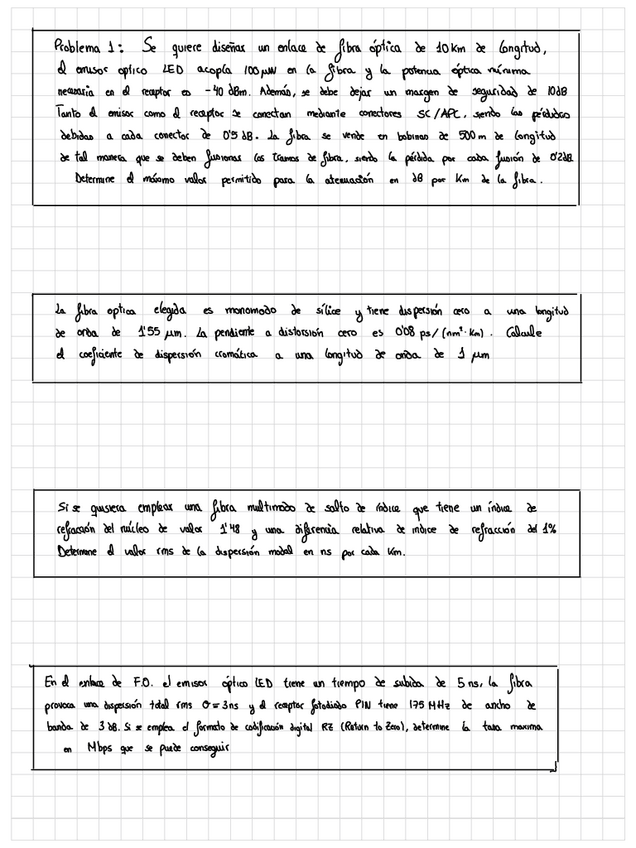 Problema 1: Se quiere diseñar un enlace de fibra óptica de 10 Km de longitud,
el emisor optico LED acopla 100 μW en la fibra y la potencia óptica mínima
necesaria en el receptor es -40 dBm. Además, se debe dejar un margen de seguridad de 10 dB
Tanto el emisor como el receptor se conectan mediante conectores SC/APC, siendo las pérdidas
debidas a cada conector de 0'5 dB. La fibra se vende en bobinas de 500 m de longitud
de tal manera que se deben fusionar los tramos de fibra, siendo la pérdida por cada fusión de 0'2 dB.
Determine el máximo valor permitido para la atenuación en dB por Km de la fibra.
La fibra optica elegida es monomodo de sílice y tiene dispersión cero a una longitud
de onda de 1'55 μm. La pendiente a distorsión cero es 0'08 ps/(nm²·Km). Calcule
el coeficiente de dispersión cromática a una longitud de onda de 1 μm
Si se quisiera emplear una fibra multimodo de salto de índice que tiene un índice de
refracción del núcleo de valor 1'48 y una diferencia relativa de indice de refracción del 1%
Determine el valor rms de la dispersión modal en ns por cada Km.
En el enlace de F.O. el emisor óptico LED tiene un tiempo de subida de 5 ns, la fibra
provoca una dispersión total rms σ = 3ns y el receptor fotodiodo PIN tiene 175 MHz de ancho de
banda de 3 dB. Si se emplea el formato de codificación digital RZ (Return to Zero), determine la tasa maxima
en Mbps que se puede conseguir